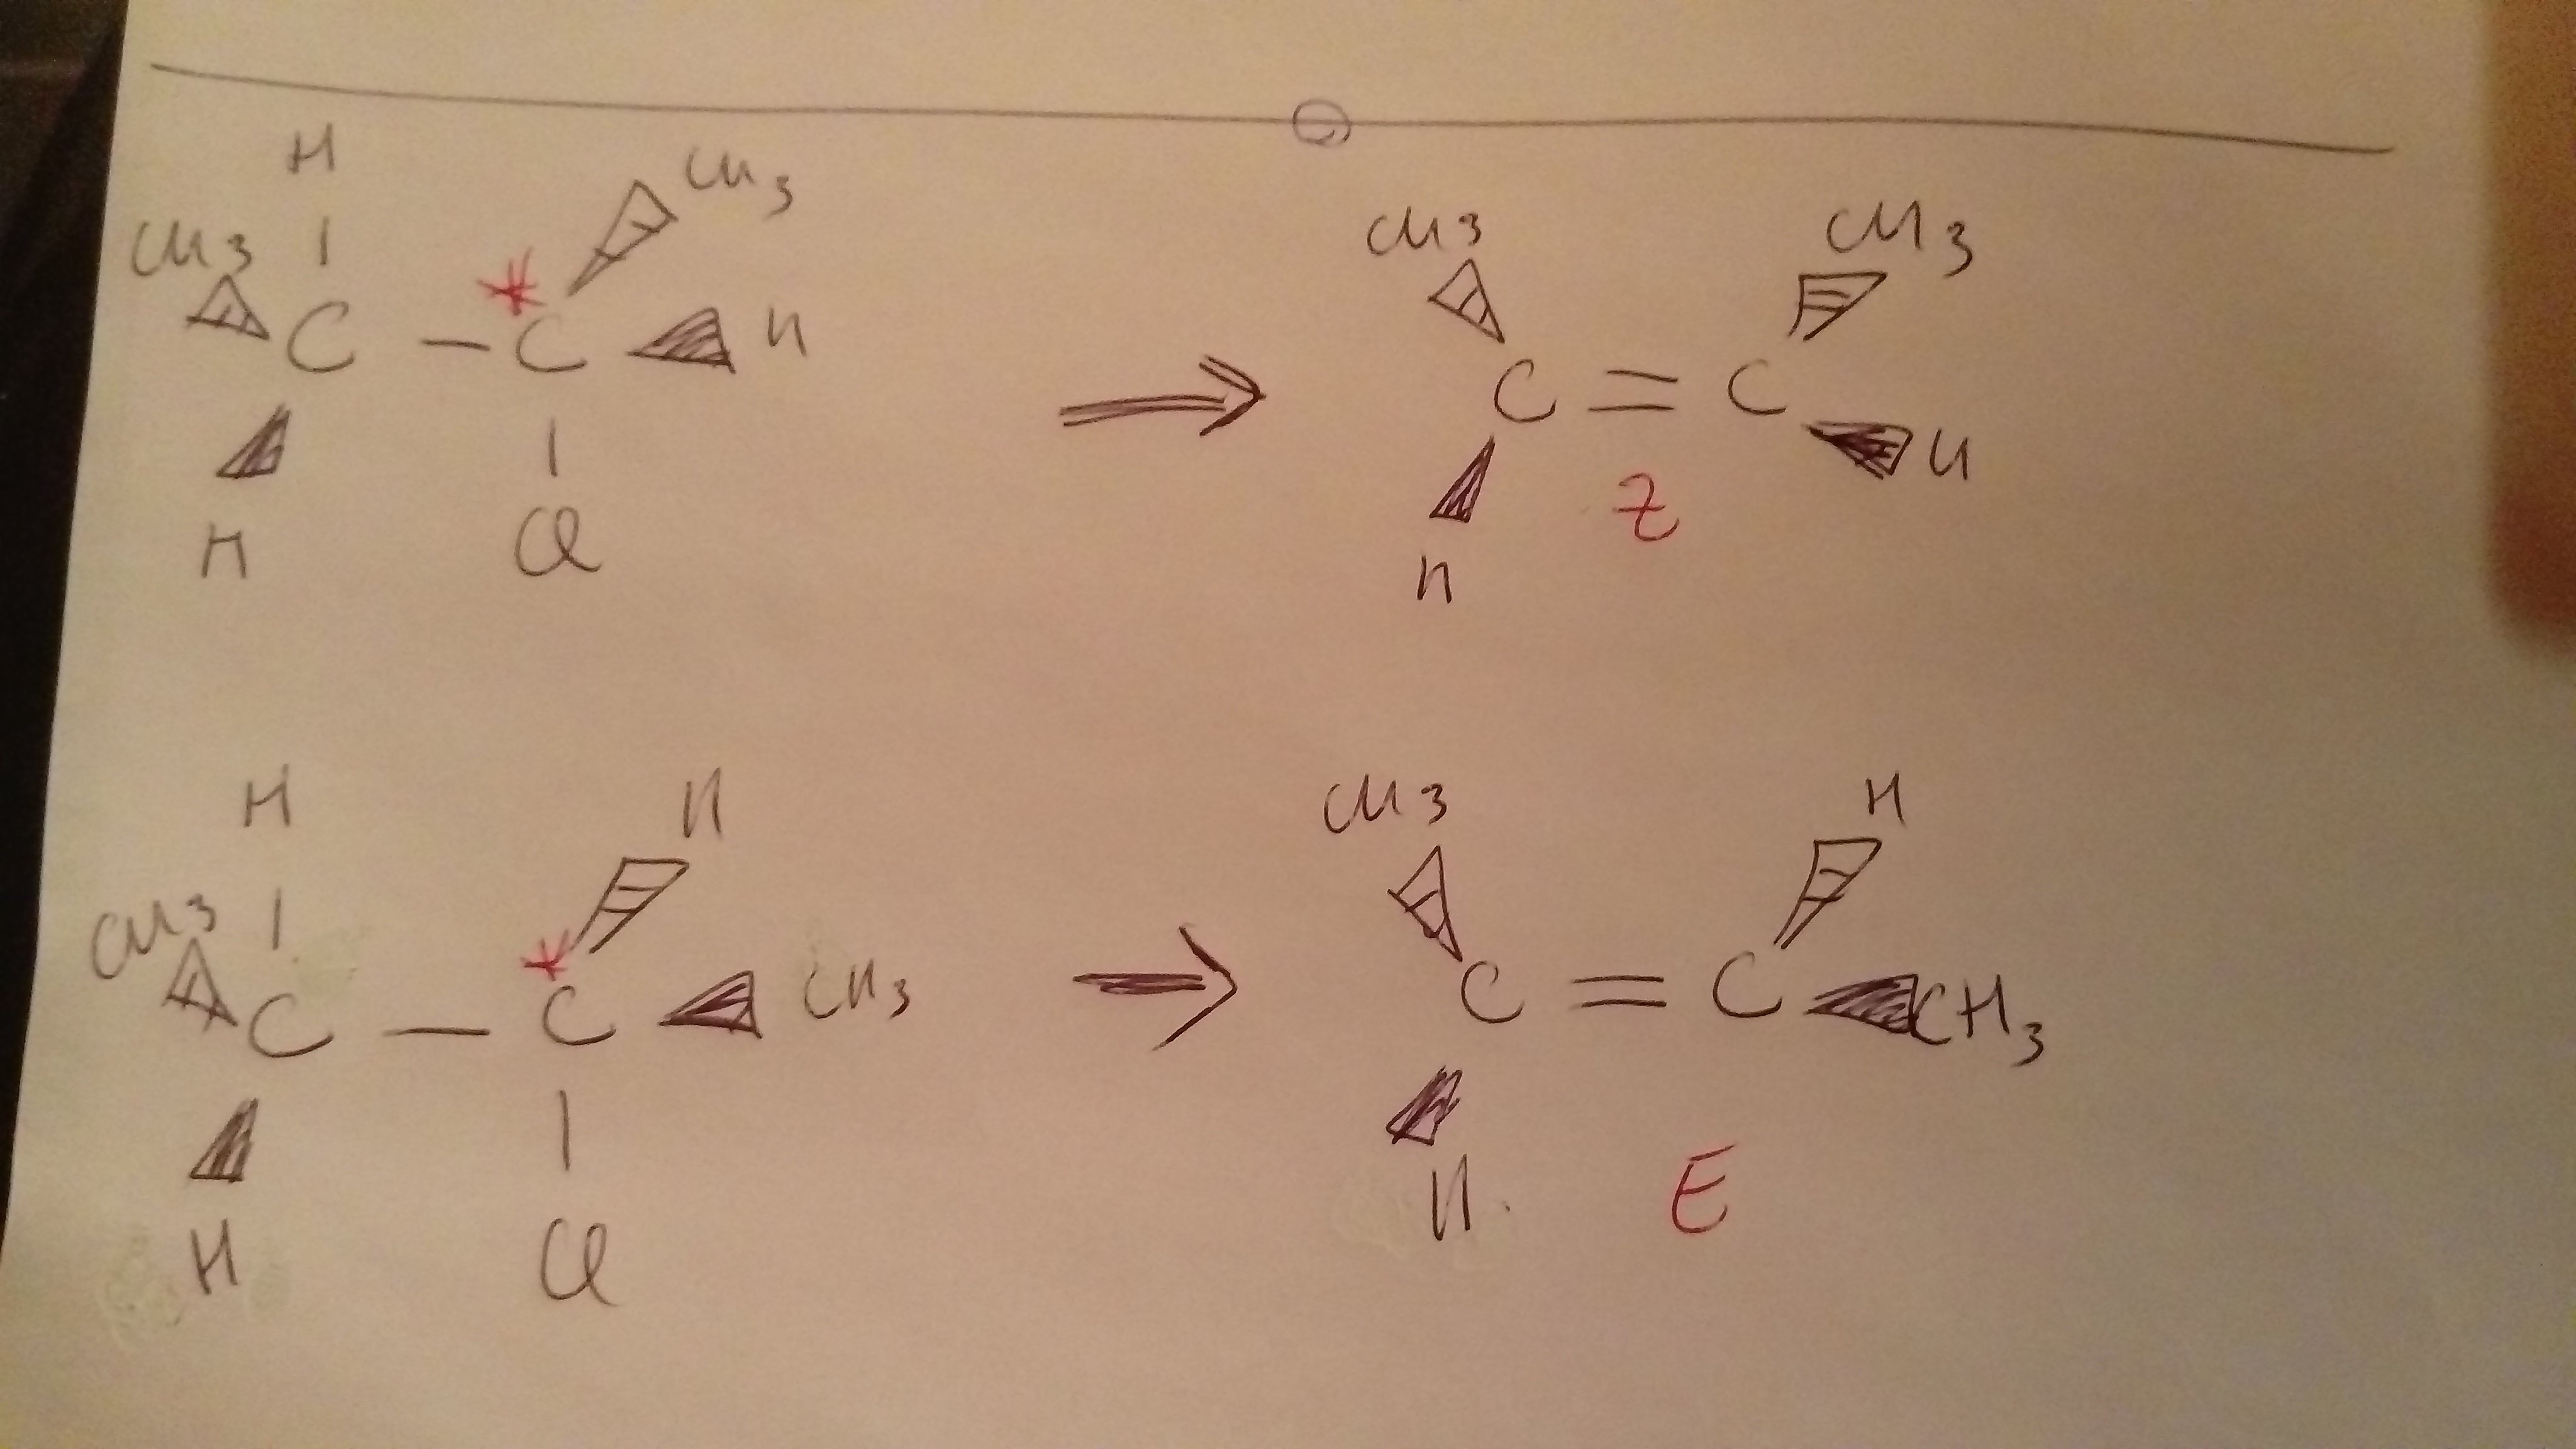 H
CH3
CH3
* C - C H
H
Cl
CH3
CH3
C = C
H
H
Z
H
H
CH3
* C - C CH3
H
Cl
CH3
H
C = C CH3
H
E